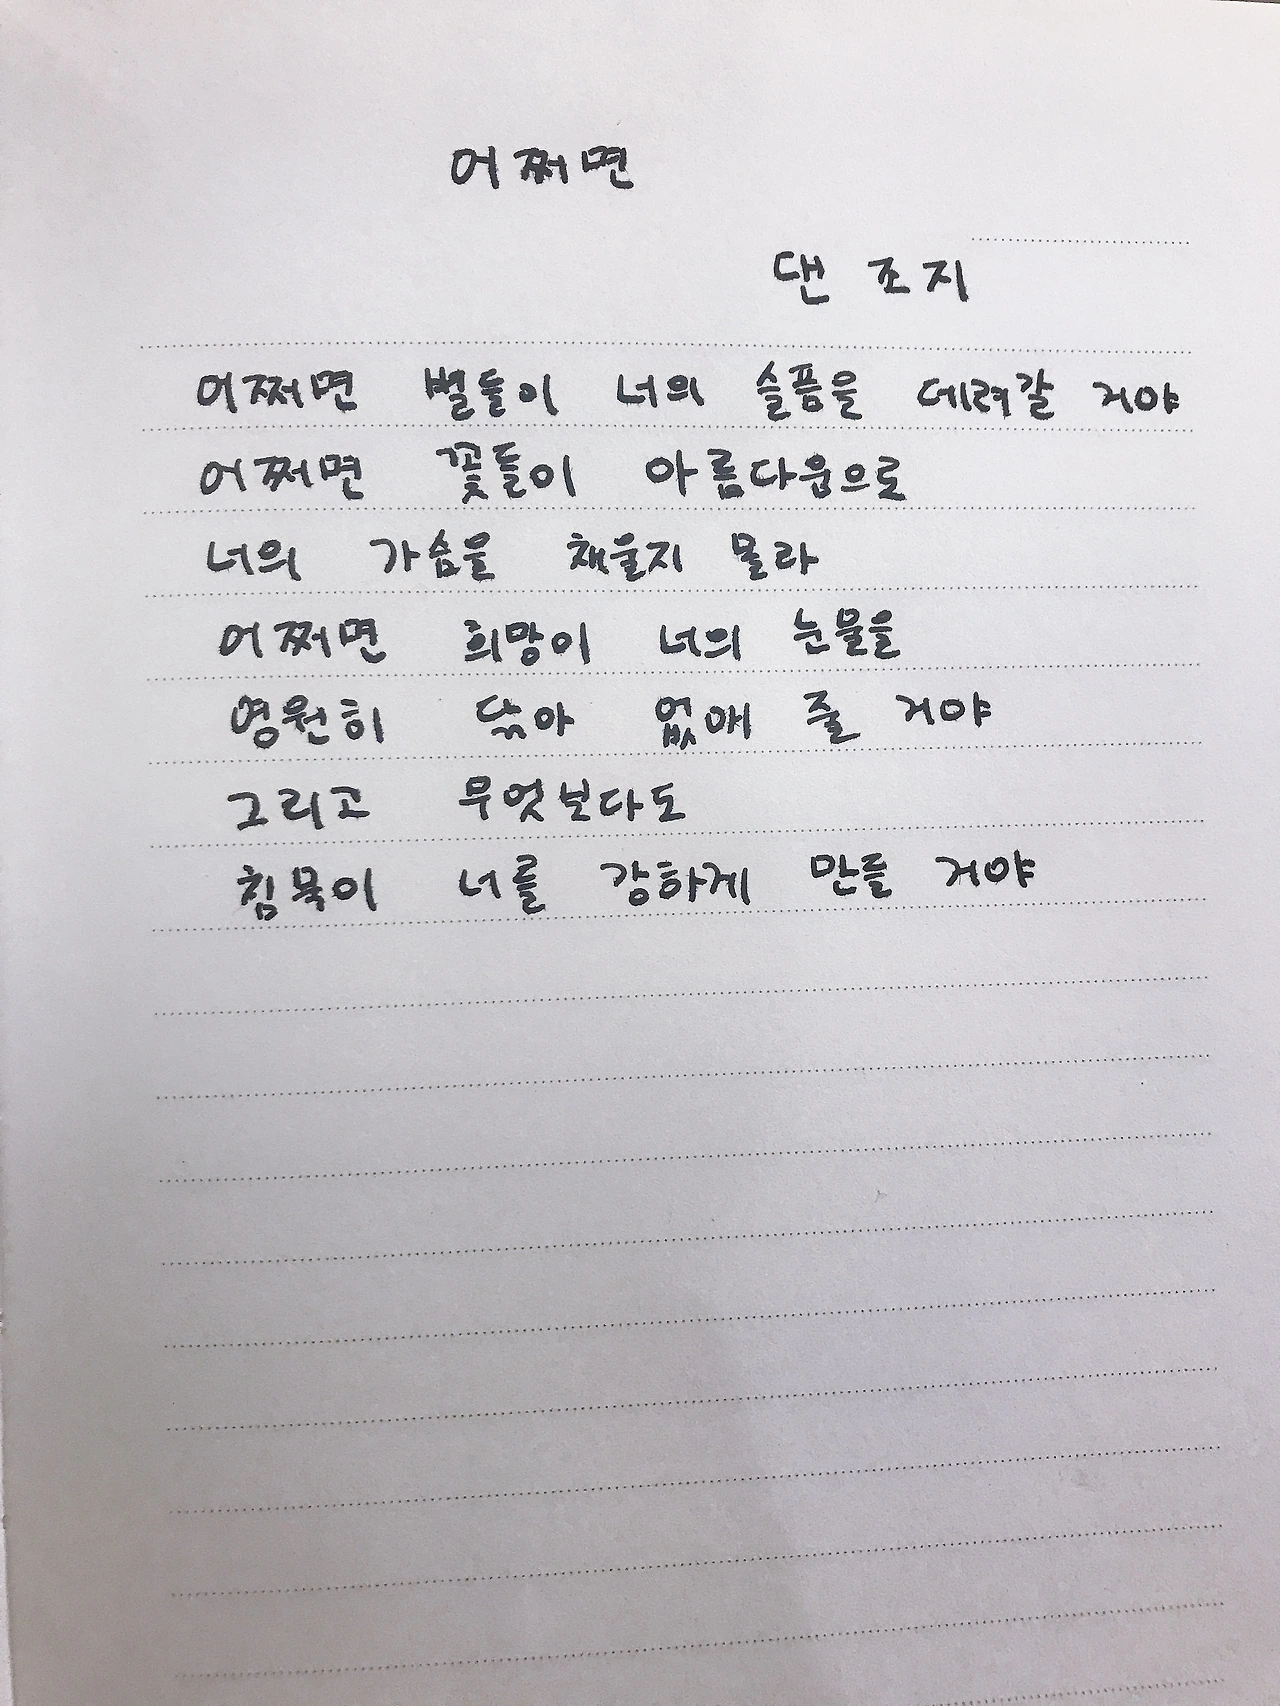 어쩌면
댄 조지
어쩌면 별들이 너의 슬픔을 데려갈 거야
어쩌면 꽃들이 아름다움으로
너의 가슴을 채울지 몰라
어쩌면 희망이 너의 눈물을
영원히 닦아 없애 줄 거야
그리고 무엇보다도
침묵이 너를 강하게 만들 거야